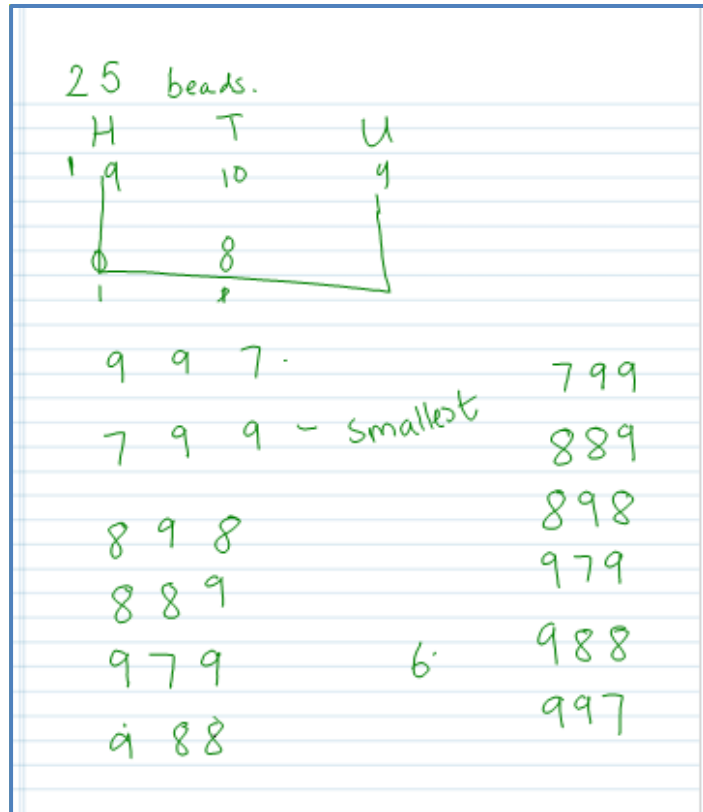 25 beads.
H T U
1 9 10 9
0 8
1 8
9 9 7.
7 9 9 - smallest
8 9 8
8 8 9
9 7 9
9 8 8
6.
799
889
898
979
988
997